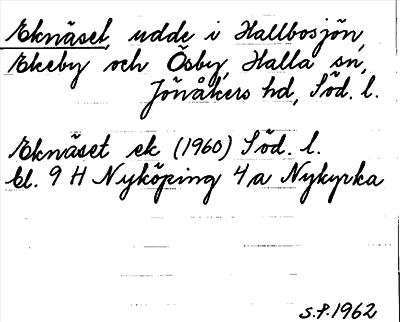 Eknäset, udde i Hallbosjön,
Ekeby och Ösby, Halla sn,
Jönåkers hd, Söd. l.
Eknäset ek (1960) Söd. l.
bl. 9 H Nyköping 4a Nykyrka
S.P. 1962